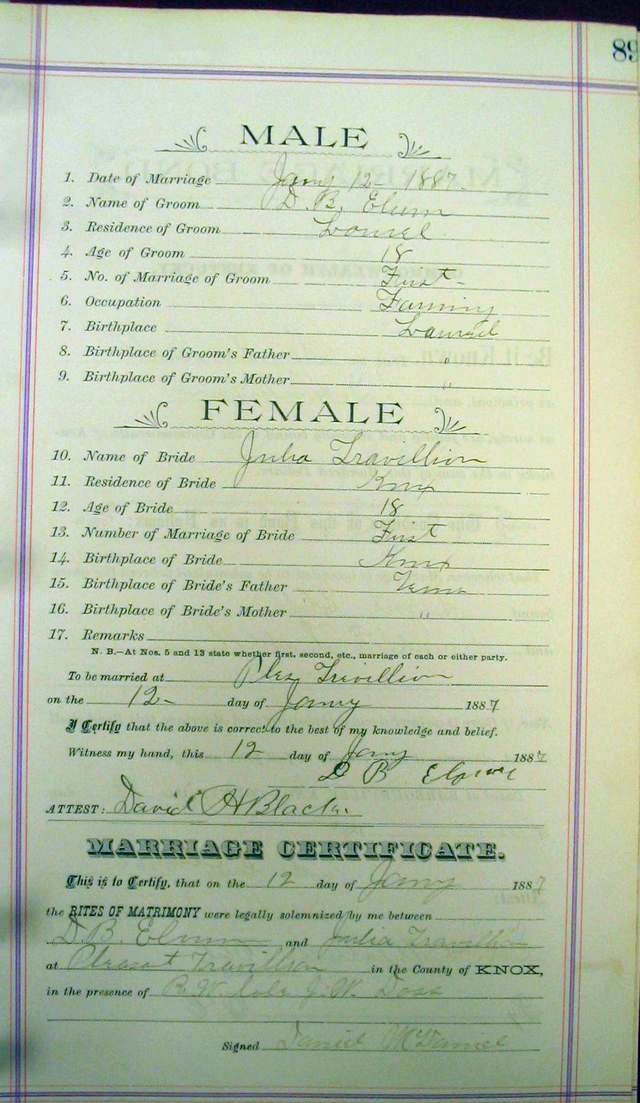 89
MALE
1. Date of Marriage Jany 12 - 1887.
2. Name of Groom D. B. Elum
3. Residence of Groom Laurel
4. Age of Groom 18
5. No. of Marriage of Groom First
6. Occupation Farming
7. Birthplace Laurel
8. Birthplace of Groom's Father "
9. Birthplace of Groom's Mother "
FEMALE
10. Name of Bride Julia Travillion
11. Residence of Bride Knox
12. Age of Bride 18
13. Number of Marriage of Bride First
14. Birthplace of Bride Knox
15. Birthplace of Bride's Father Tenn
16. Birthplace of Bride's Mother "
17. Remarks
N. B.—At Nos. 5 and 13 state whether first, second, etc., marriage of each or either party.
To be married at Ples Trivillion
on the 12 day of Jany 1887
I Certify that the above is correct to the best of my knowledge and belief.
Witness my hand, this 12 day of Jany 1887
D B
ATTEST: David H Black
MARRIAGE CERTIFICATE.
This is to Certify, that on the 12 day of Jany 1887
the RITES OF MATRIMONY were legally solemnized by me between
D. B. Elum and Julia Travillion
at Pleasant Travillion in the County of KNOX,
in the presence of R. W. Cole J. W. Doss
Signed Daniel McDaniel